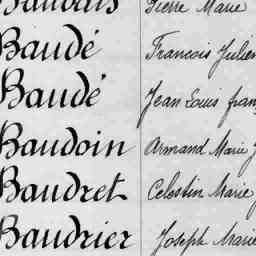 Pierre Marie
Baudé Francois Julien
Baudé Jean Louis
Baudoin Armand Marie
Baudret Celestin Marie
Baudrier Joseph Marie